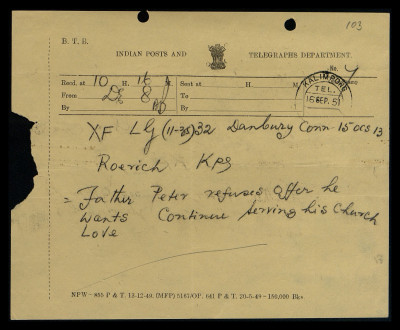 103
B. T. R.
INDIAN POSTS AND TELEGRAPHS DEPARTMENT.
No.
Recd. at 10 H. 16 M. Sent at H. M.
From To
By By
KALIMPONG
TEL.
16 SEP. 5
XF LG (11-35) 32 Danbury Conn 15 13
Roerich Kpg
= Father Peter refuses offer he
wants Continue serving his Church
Love
NFW—855 P & T. 13-12-49. (MFP) 5187/OP. 641 P & T. 20-5-49—150,000 Bks.